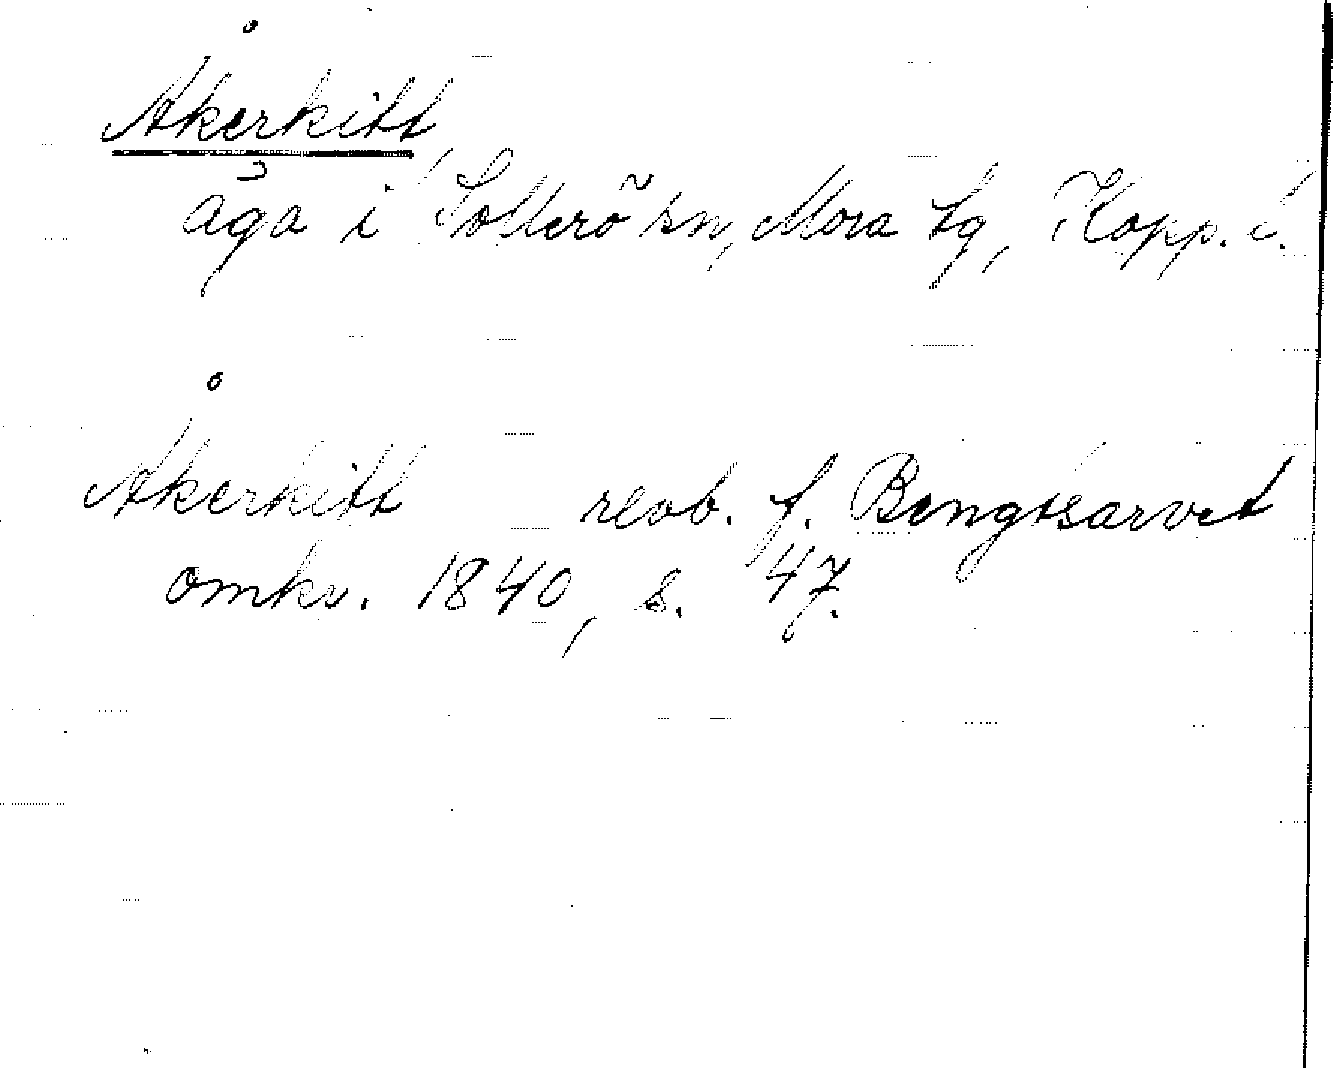 Åkerkitt
åga i Sollerö sn, Mora tg, Kopp. l.
Åkerkitt revb. f. Bengtsarvet
omkr. 1840, s. 47.